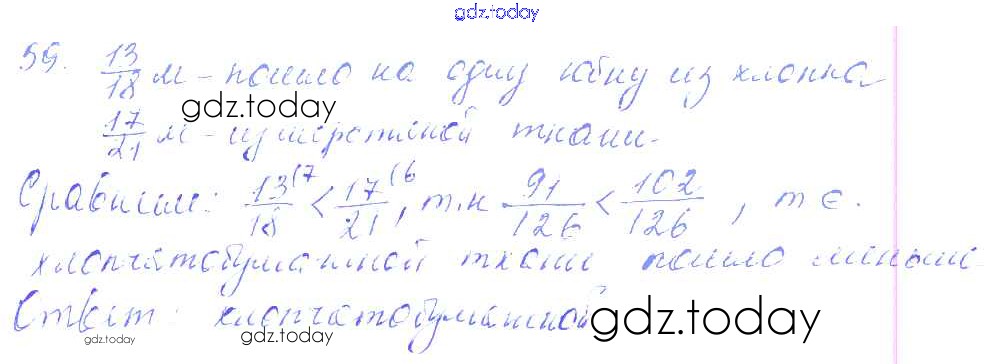 gdz.today
59. 13/18 м - пошло на одну юбку из хлопка
gdz.today
17/21 м - из шерстяной ткани.
Сравним: 13(7/18 < 17(6/21, т.к 91/126 < 102/126, т е.
хлопчатобумажной ткани пошло меньше
Ответ: хлопчатобумажной
gdz.today gdz.today gdz.today